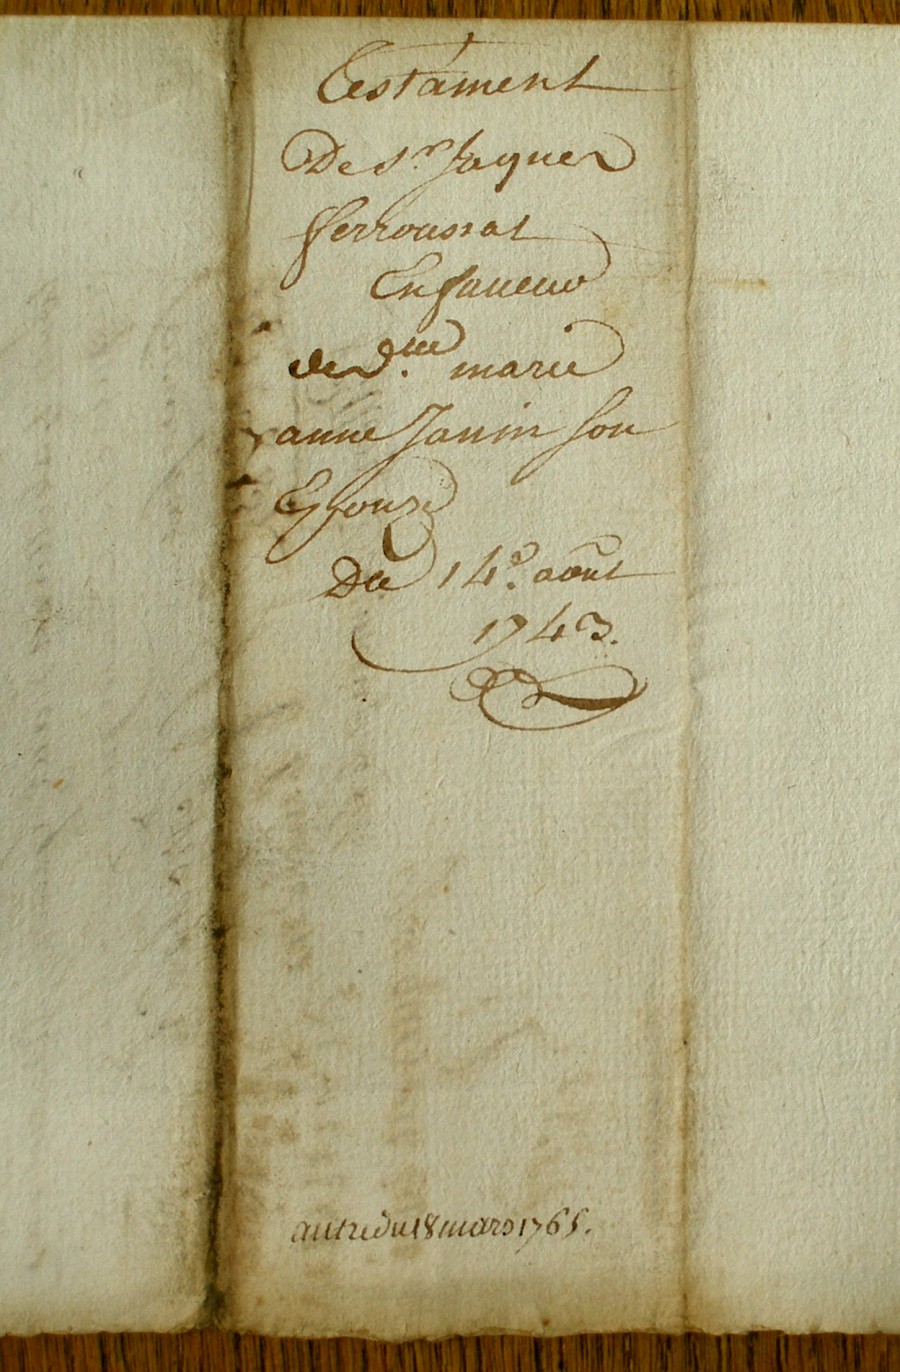 Testament
De Sr. Jaques
ferroussat
En faueur
de Dlle. marie
anne Janin son
Epouze
Du 14e. aout
1743.
autre du 18 mars 1765.